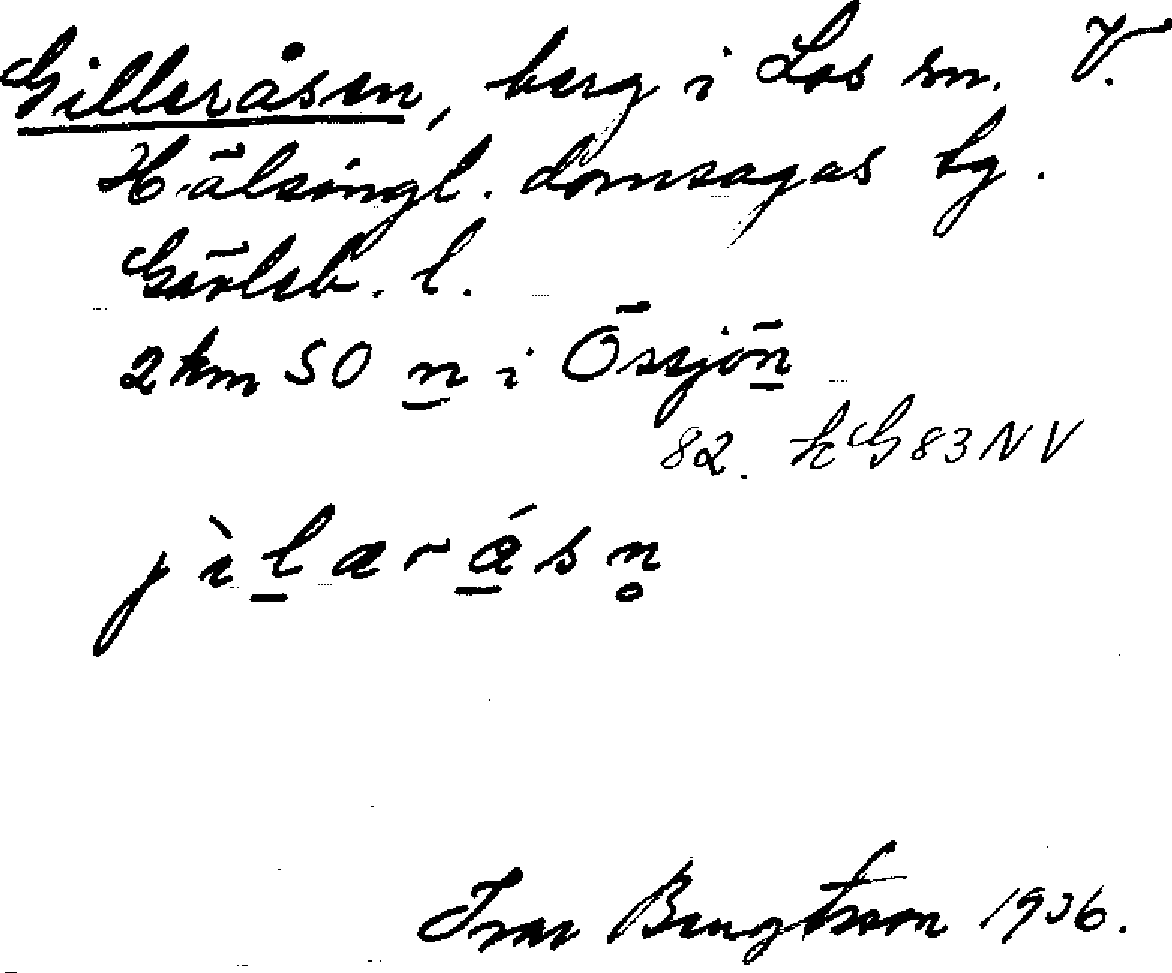 Gilleråsen, berg i Los sn. V.
Hälsingl. domsagas tg.
Gävleb. l.
2 km SO n i Össjön
82. kG83NV
j ì l a r ǻ s n̥
Ivar Bengtsson 1936.